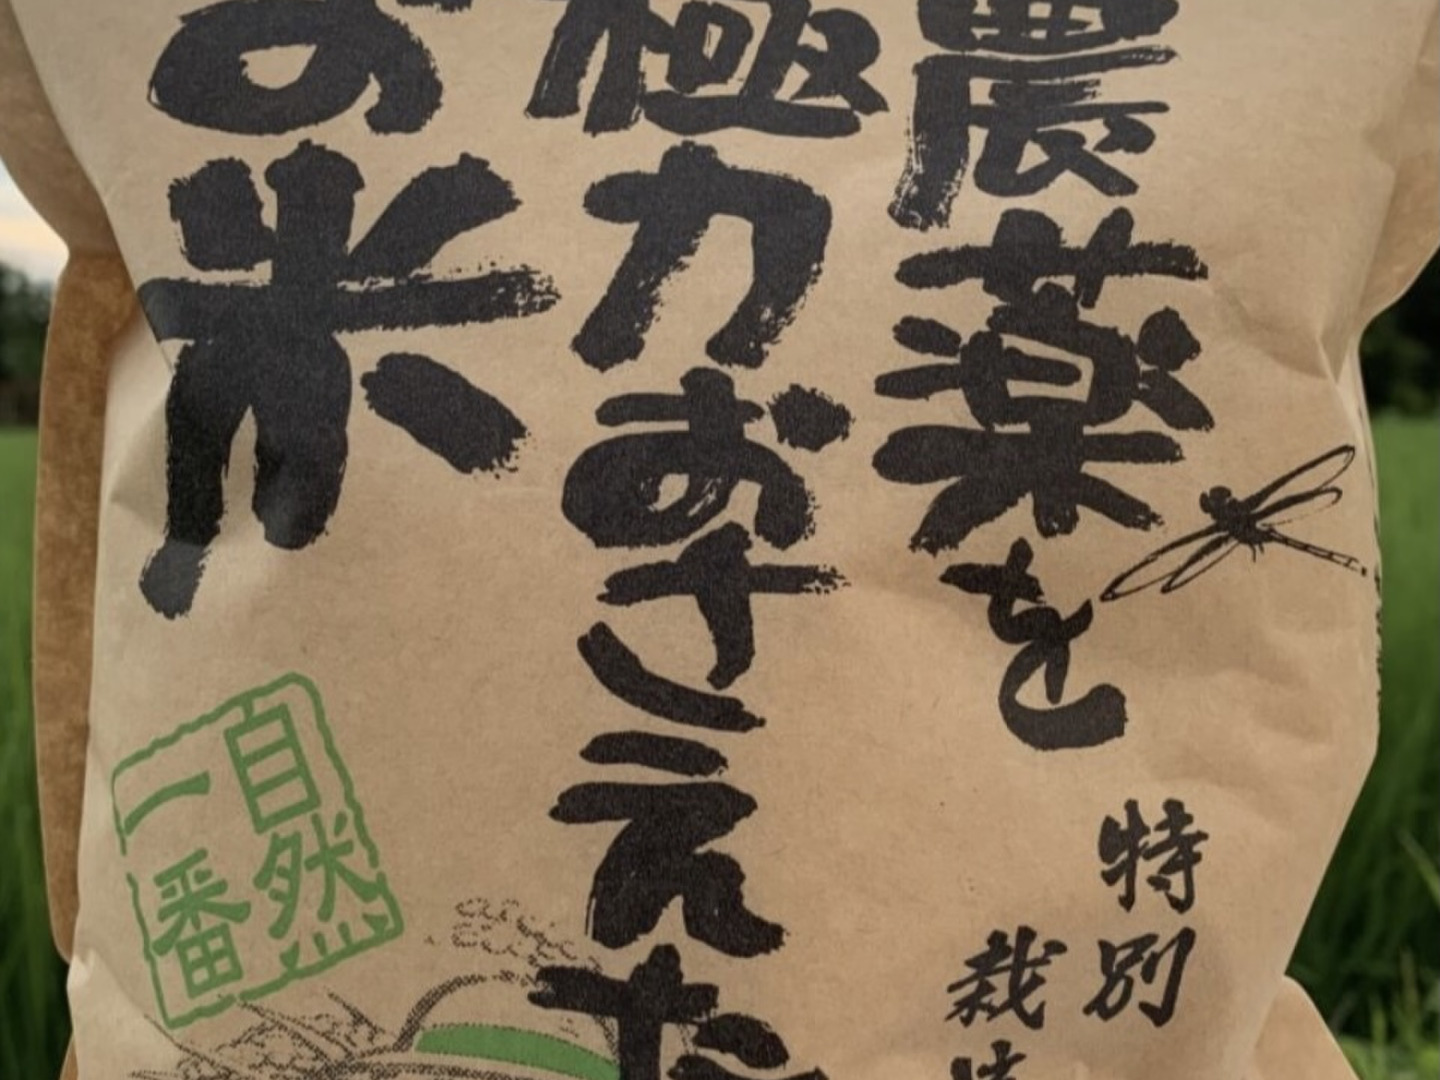 農薬を
極力おさえた
お米
特別
栽培
自然
一番